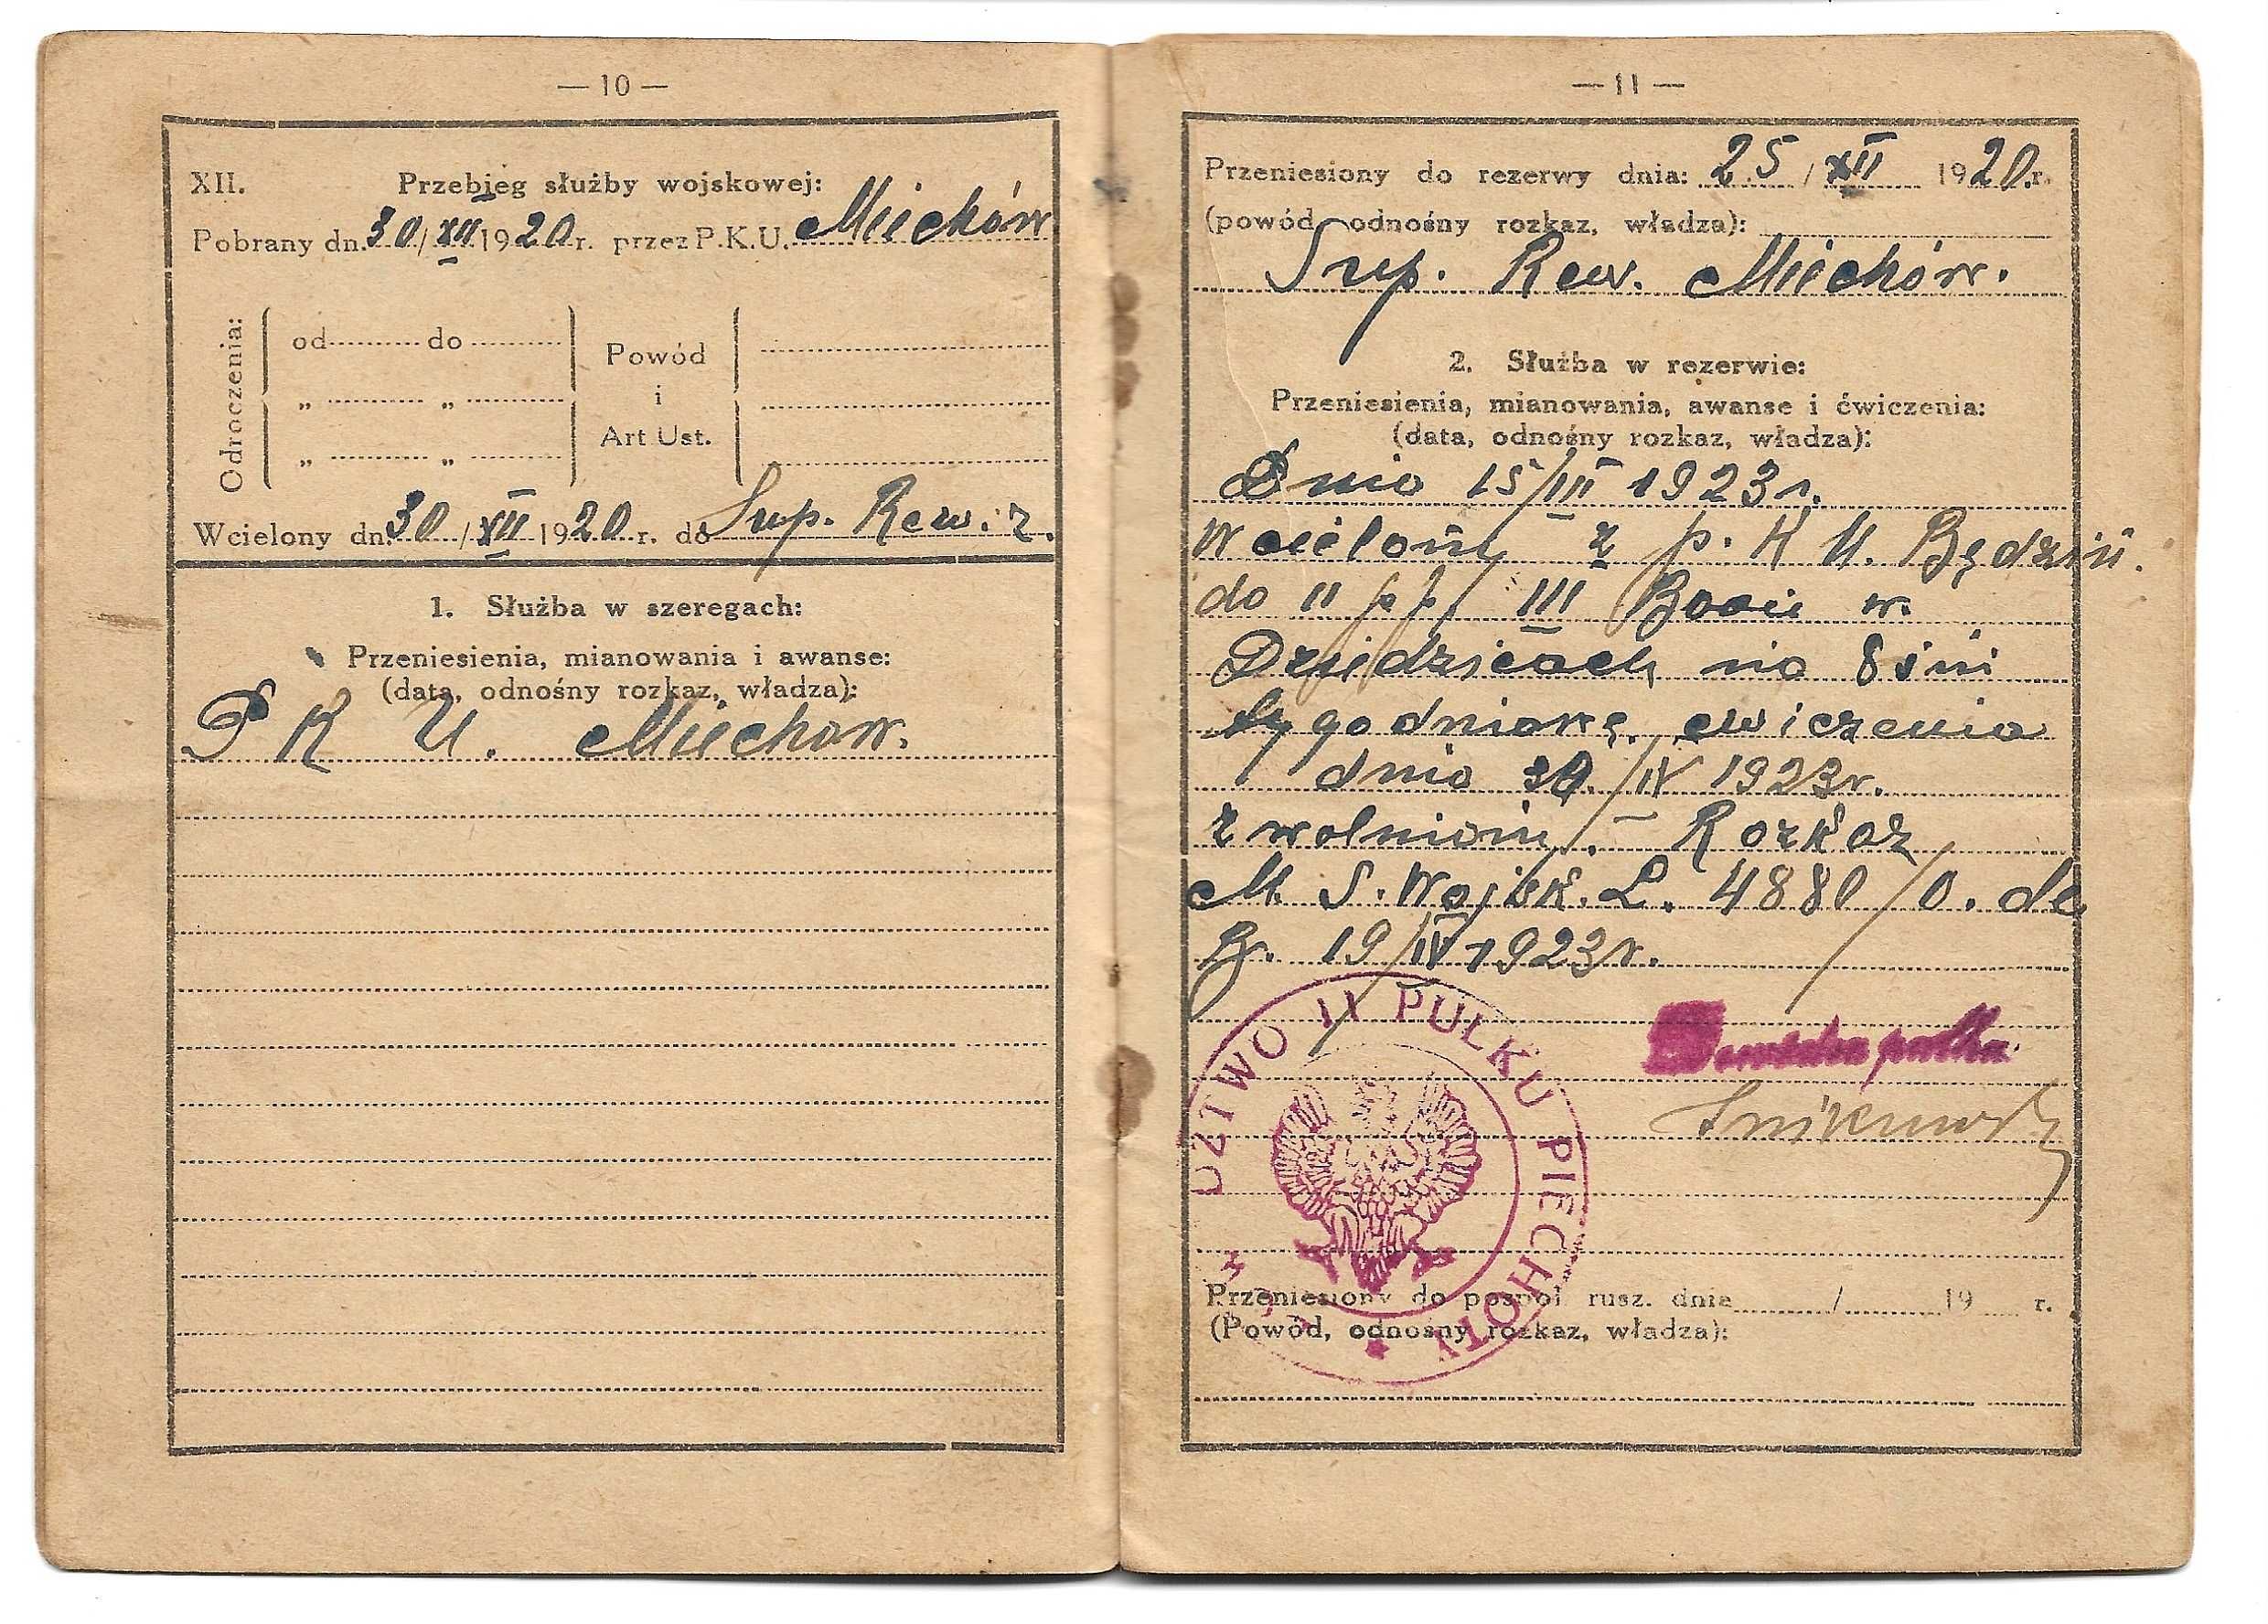 — 10 —
XII. Przebieg służby wojskowej:
Pobrany dn. 30/XII 1920 r. przez P.K.U. Miechów
Odroczenia:
od do
„ „
„ „
Powód
i
Art Ust.
Wcielony dn. 30/XII 1920 r. do Sup. Rewiz.
1. Służba w szeregach:
Przeniesienia, mianowania i awanse:
(data, odnośny rozkaz, władza):
P K U. Miechow.
— 11 —
Przeniesiony do rezerwy dnia: 25/XII 1920 r.
(powód odnośny rozkaz, władza):
Sup. Rew. Miechów.
2. Służba w rezerwie:
Przeniesienia, mianowania, awanse i ćwiczenia:
(data, odnośny rozkaz, władza):
Dnia 15/III 1923 r.
Wcielony z p. K U. Będzin.
do 11 pp, III Baon w.
Dziedzicach na 8śmi
tygodniowe cwiczenia
dnia 30./IV 1923 r.
zwolniony. – Rozkaz
M. S. Wojsk. L. 4880/O. de
B. 19/IV 1923 r.
DZTWO 11 PUŁKU PIECHOTY
pułku
Przeniesiony do pospol. rusz. dnia / 19 r.
(Powód, odnośny rozkaz, władza):